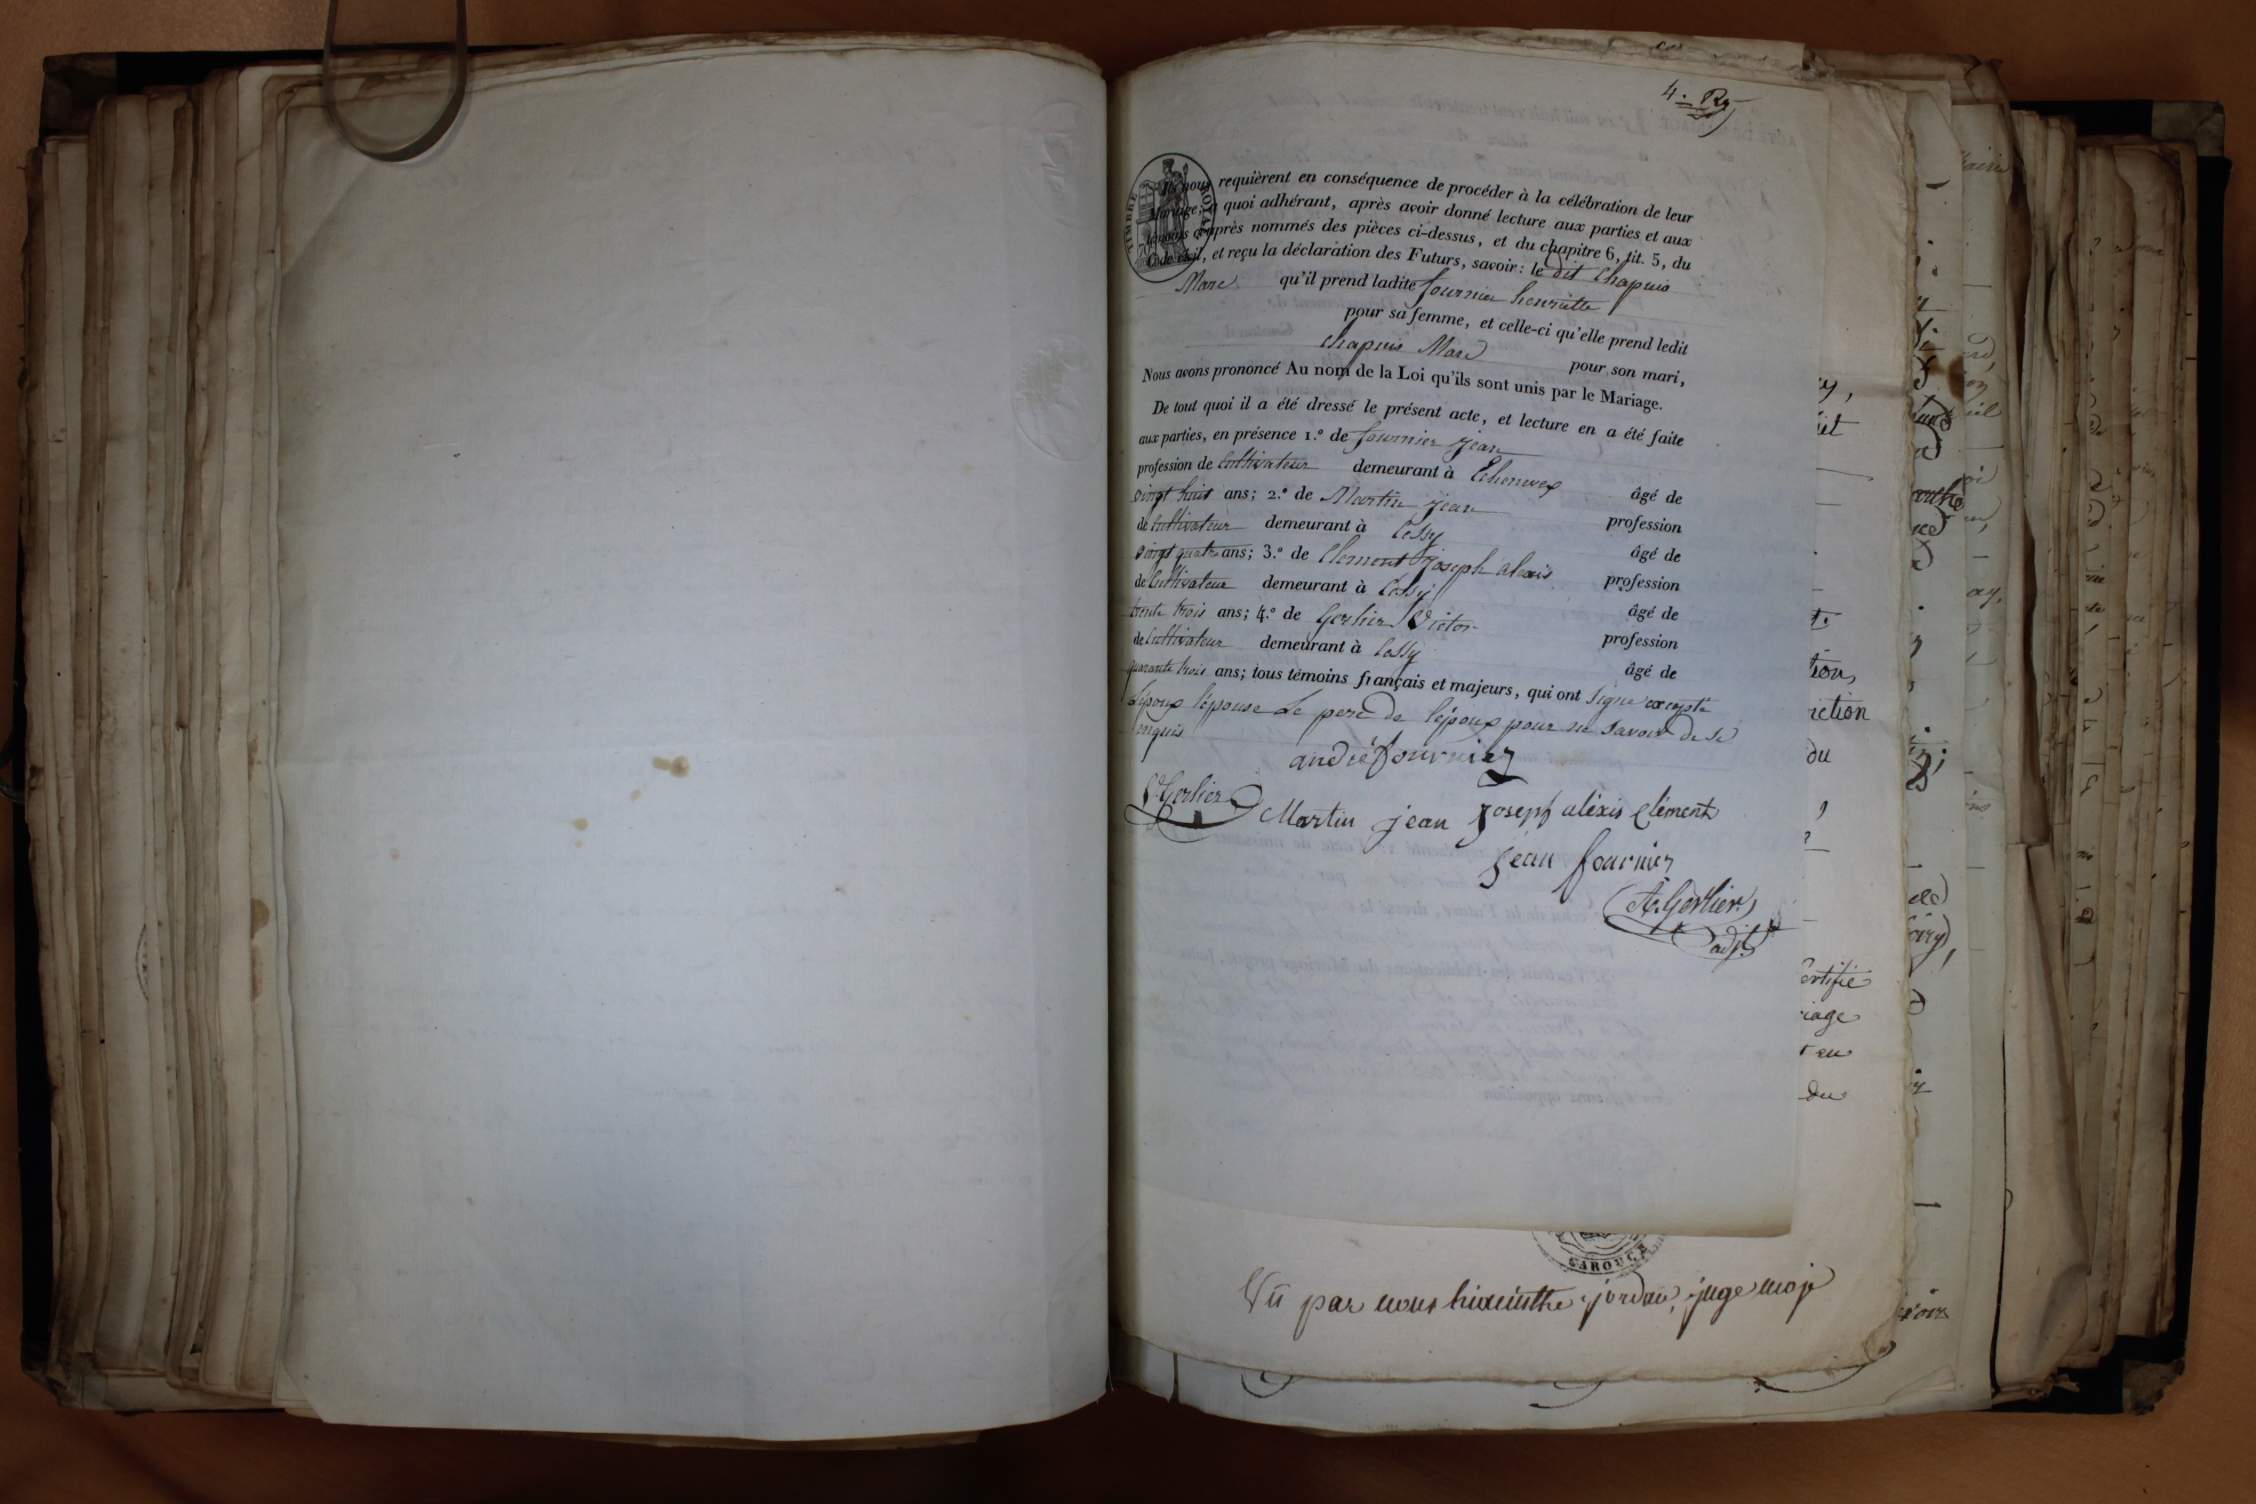 4. Ry
TIMBRE ROYAL
Ils nous requièrent en conséquence de procéder à la célébration de leur
Mariage; à quoi adhérant, après avoir donné lecture aux parties et aux
témoins ci-après nommés des pièces ci-dessus, et du chapitre 6, tit. 5, du
Code civil, et reçu la déclaration des Futurs, savoir: le dit Chapuis
Marc qu'il prend ladite fournier henriette
pour sa femme, et celle-ci qu'elle prend ledit
Chapuis Marc pour son mari,
Nous avons prononcé Au nom de la Loi qu'ils sont unis par le Mariage.
De tout quoi il a été dressé le présent acte, et lecture en a été faite
aux parties, en présence 1.º de fournier jean
profession de Cultivateur demeurant à Echenevex âgé de
vingt huit ans; 2.º de Martin jean profession
de Cultivateur demeurant à Cessy âgé de
vingt quatre ans; 3.º de Clement joseph alexis profession
de Cultivateur demeurant à Cessy âgé de
trente trois ans; 4.º de Gerlier Victor profession
de Cultivateur demeurant à Cessy âgé de
quarante trois ans; tous témoins français et majeurs, qui ont signé excepté
L'époux l'épouse Le pere de l'époux pour ne savoir de ce
enquis
andré fournier
V. Gerlier Martin jean Joseph aléxis Clément
jean fournier
A. Gerlier
adj.t
CAROUGE
Vu par nous hiacinthe jordan, juge maje